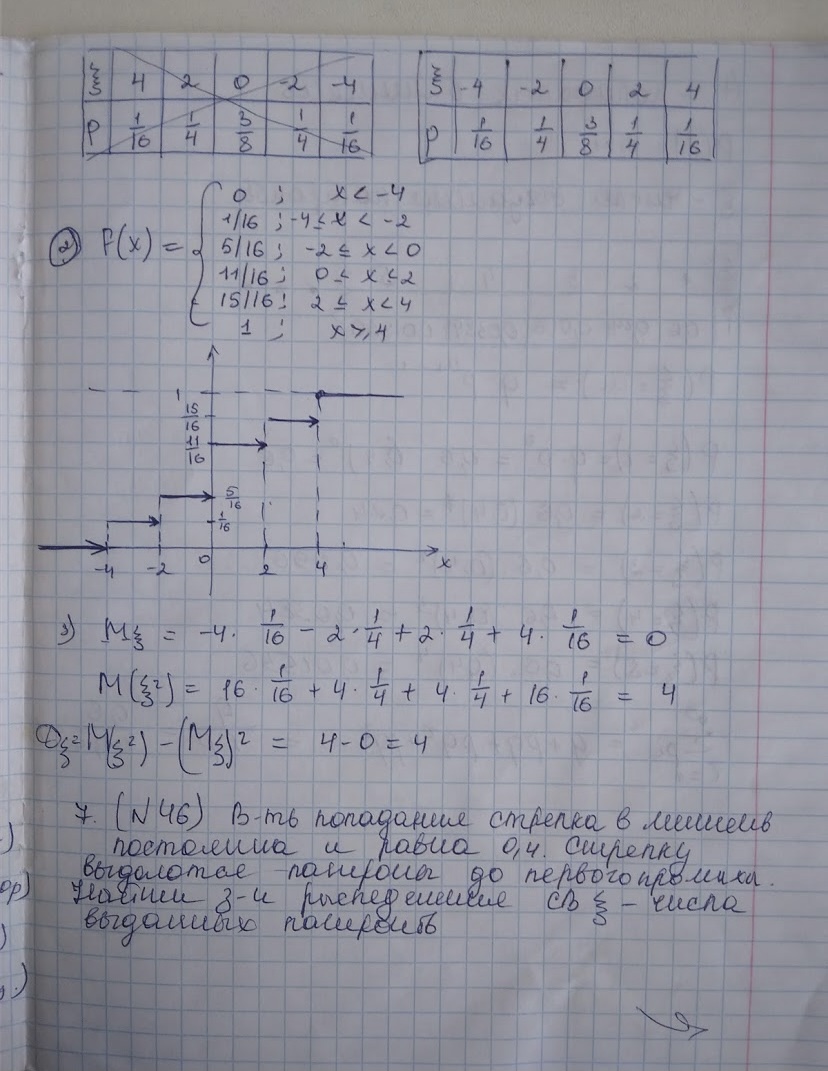 ξ 4 2 0 -2 -4
P 1/16 1/4 3/8 1/4 1/16
ξ -4 -2 0 2 4
P 1/16 1/4 3/8 1/4 1/16
② F(x) = {
0 ; x < -4
1/16 ; -4 ≤ x < -2
5/16 ; -2 ≤ x < 0
11/16 ; 0 ≤ x ≤ 2
15/16 ; 2 ≤ x < 4
1 ; x ≥ 4
1
15/16
11/16
5/16
1/16
-4 -2 0 2 4 x
3) Mξ = -4 · 1/16 - 2 · 1/4 + 2 · 1/4 + 4 · 1/16 = 0
M(ξ²) = 16 · 1/16 + 4 · 1/4 + 4 · 1/4 + 16 · 1/16 = 4
Dξ = M(ξ²) - (Mξ)² = 4 - 0 = 4
7. (N46) В-ть попадания стрелка в мишень
постоянна и равна 0,4. Стрелку
выдаются патроны до первого промаха.
Найти з-н распределения СВ ξ - числа
выданных патронов